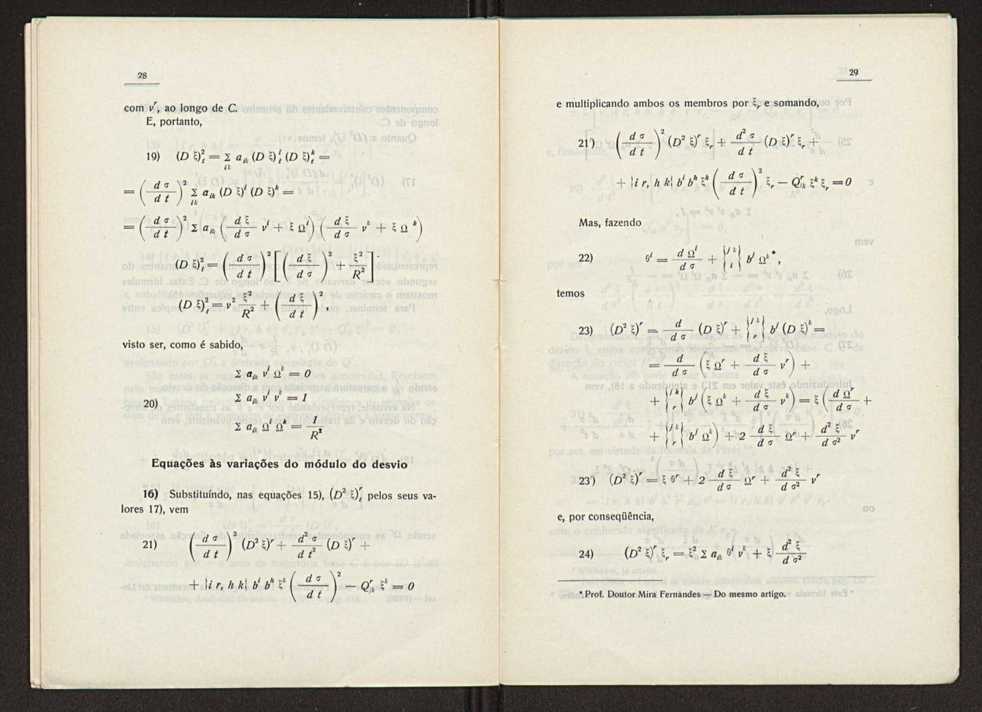 28
com νʳ, ao longo de C.
E, portanto,
19) (D ξ)²ₜ = Σᵢₖ aᵢₖ (D ξ)ⁱₜ (D ξ)ᵏₜ =
= (d σ / d t)² Σᵢₖ aᵢₖ (D ξ)ⁱ (D ξ)ᵏ =
= (d σ / d t)² Σ aᵢₖ (d ξ / d σ νⁱ + ξ Ωⁱ) (d ξ / d σ νᵏ + ξ Ω ᵏ)
(D ξ)²ₜ = (d σ / d t)² [(d ξ / d σ)² + ξ² / R²]
(D ξ)²ₜ = ν² ξ² / R² + (d ξ / d t)²,
visto ser, como é sabido,
Σ aᵢₖ νⁱ Ωᵏ = 0
20) Σ aᵢₖ νⁱ νᵏ = 1
Σ aᵢₖ Ωⁱ Ωᵏ = 1 / R²
Equações às variações do módulo do desvio
16) Substituíndo, nas equações 15), (D² ξ)ʳₜ pelos seus va-
lores 17), vem
21) (d σ / d t)² (D² ξ)ʳ + d² σ / d t² (D ξ)ʳ +
+ {i r, h k} bⁱ bʰ ξᵏ (d σ / d t)² — Qʳ/ₖ ξᵏ = 0
29
e multiplicando ambos os membros por ξᵣ e somando,
21') (d σ / d t)² (D² ξ)ʳ ξᵣ + d² σ / d t (D ξ)ʳ ξᵣ +
+ {i r, h k} bⁱ bʰ ξᵏ (d σ / d t)² ξᵣ — Qʳ/ₖ ξᵏ ξᵣ = 0
Mas, fazendo
22) θⁱ = d Ωⁱ / d σ + {j k / i} bʲ Ωᵏ *,
temos
23) (D² ξ)ʳ = d / d σ (D ξ)ʳ + {j k / r} bʲ (D ξ)ᵏ =
= d / d σ (ξ Ωʳ + d ξ / d σ νʳ) +
+ {j k / r} bʲ (ξ Ωᵏ + d ξ / d σ νᵏ) = ξ (d Ωʳ / d σ +
+ {j k / r} bʲ Ωᵏ) + 2 d ξ / d σ Ωʳ + d² ξ / d σ² νʳ
23') (D² ξ)ʳ = ξ θʳ + 2 d ξ / d σ Ωʳ + d² ξ / d σ² νʳ
e, por conseqüência,
24) (D² ξ)ʳ ξᵣ = ξ² Σ aᵢₖ θⁱ νᵏ + ξ d² ξ / d σ²
* Prof. Doutor Mira Fernandes — Do mesmo artigo.